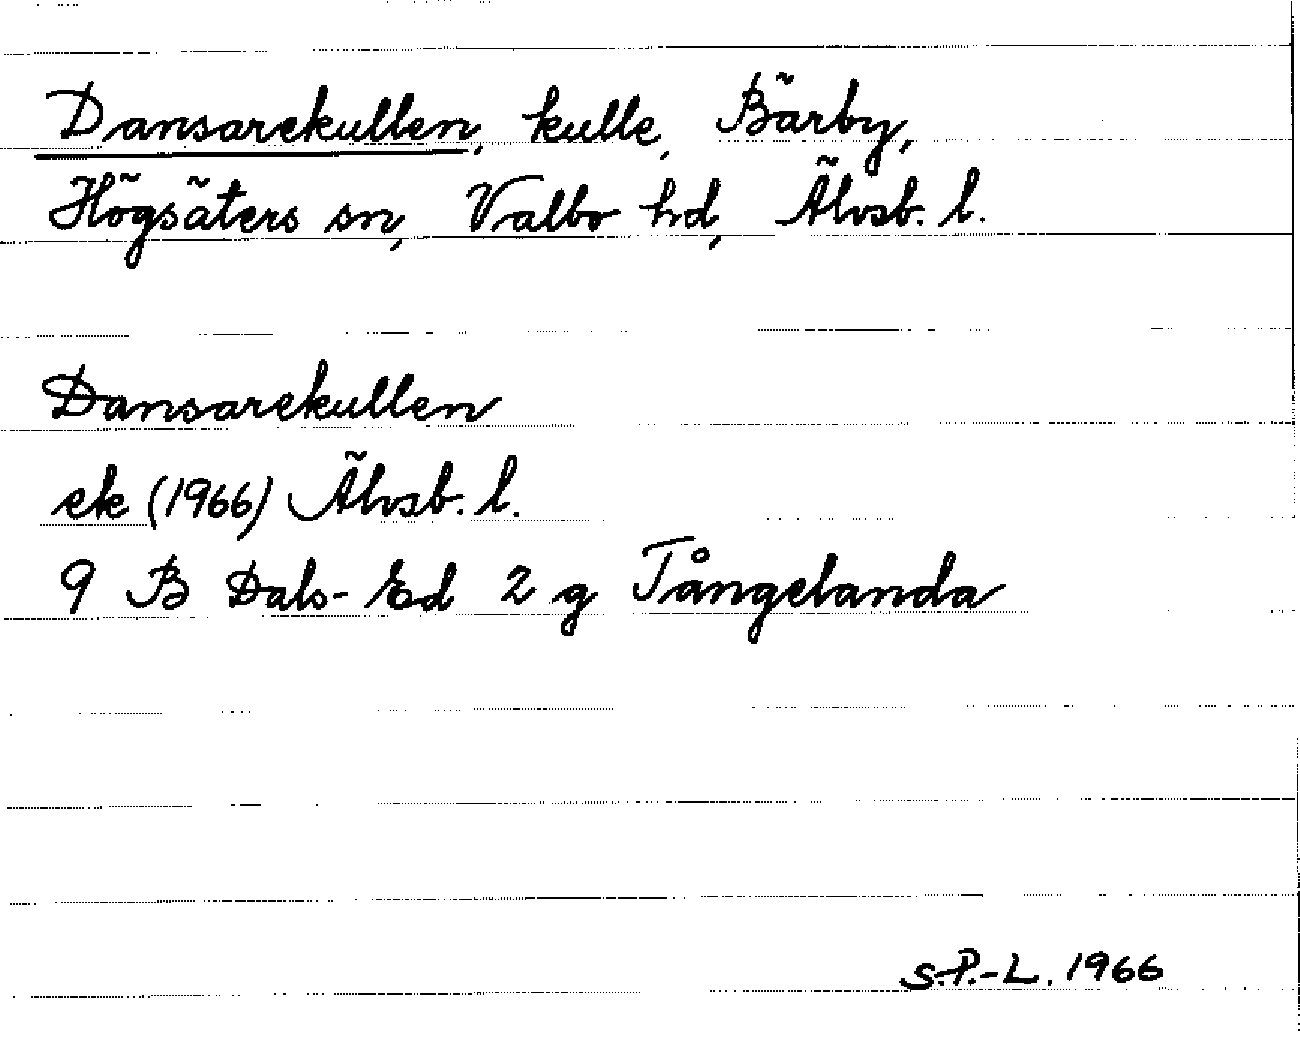 Dansarekullen, kulle, Bärby,
Högsäters sn, Valbo hd, Älvsb. l.
Dansarekullen
ek (1966) Älvsb. l.
9 B Dals-Ed 2 g Tångelanda
S.P.-L. 1966